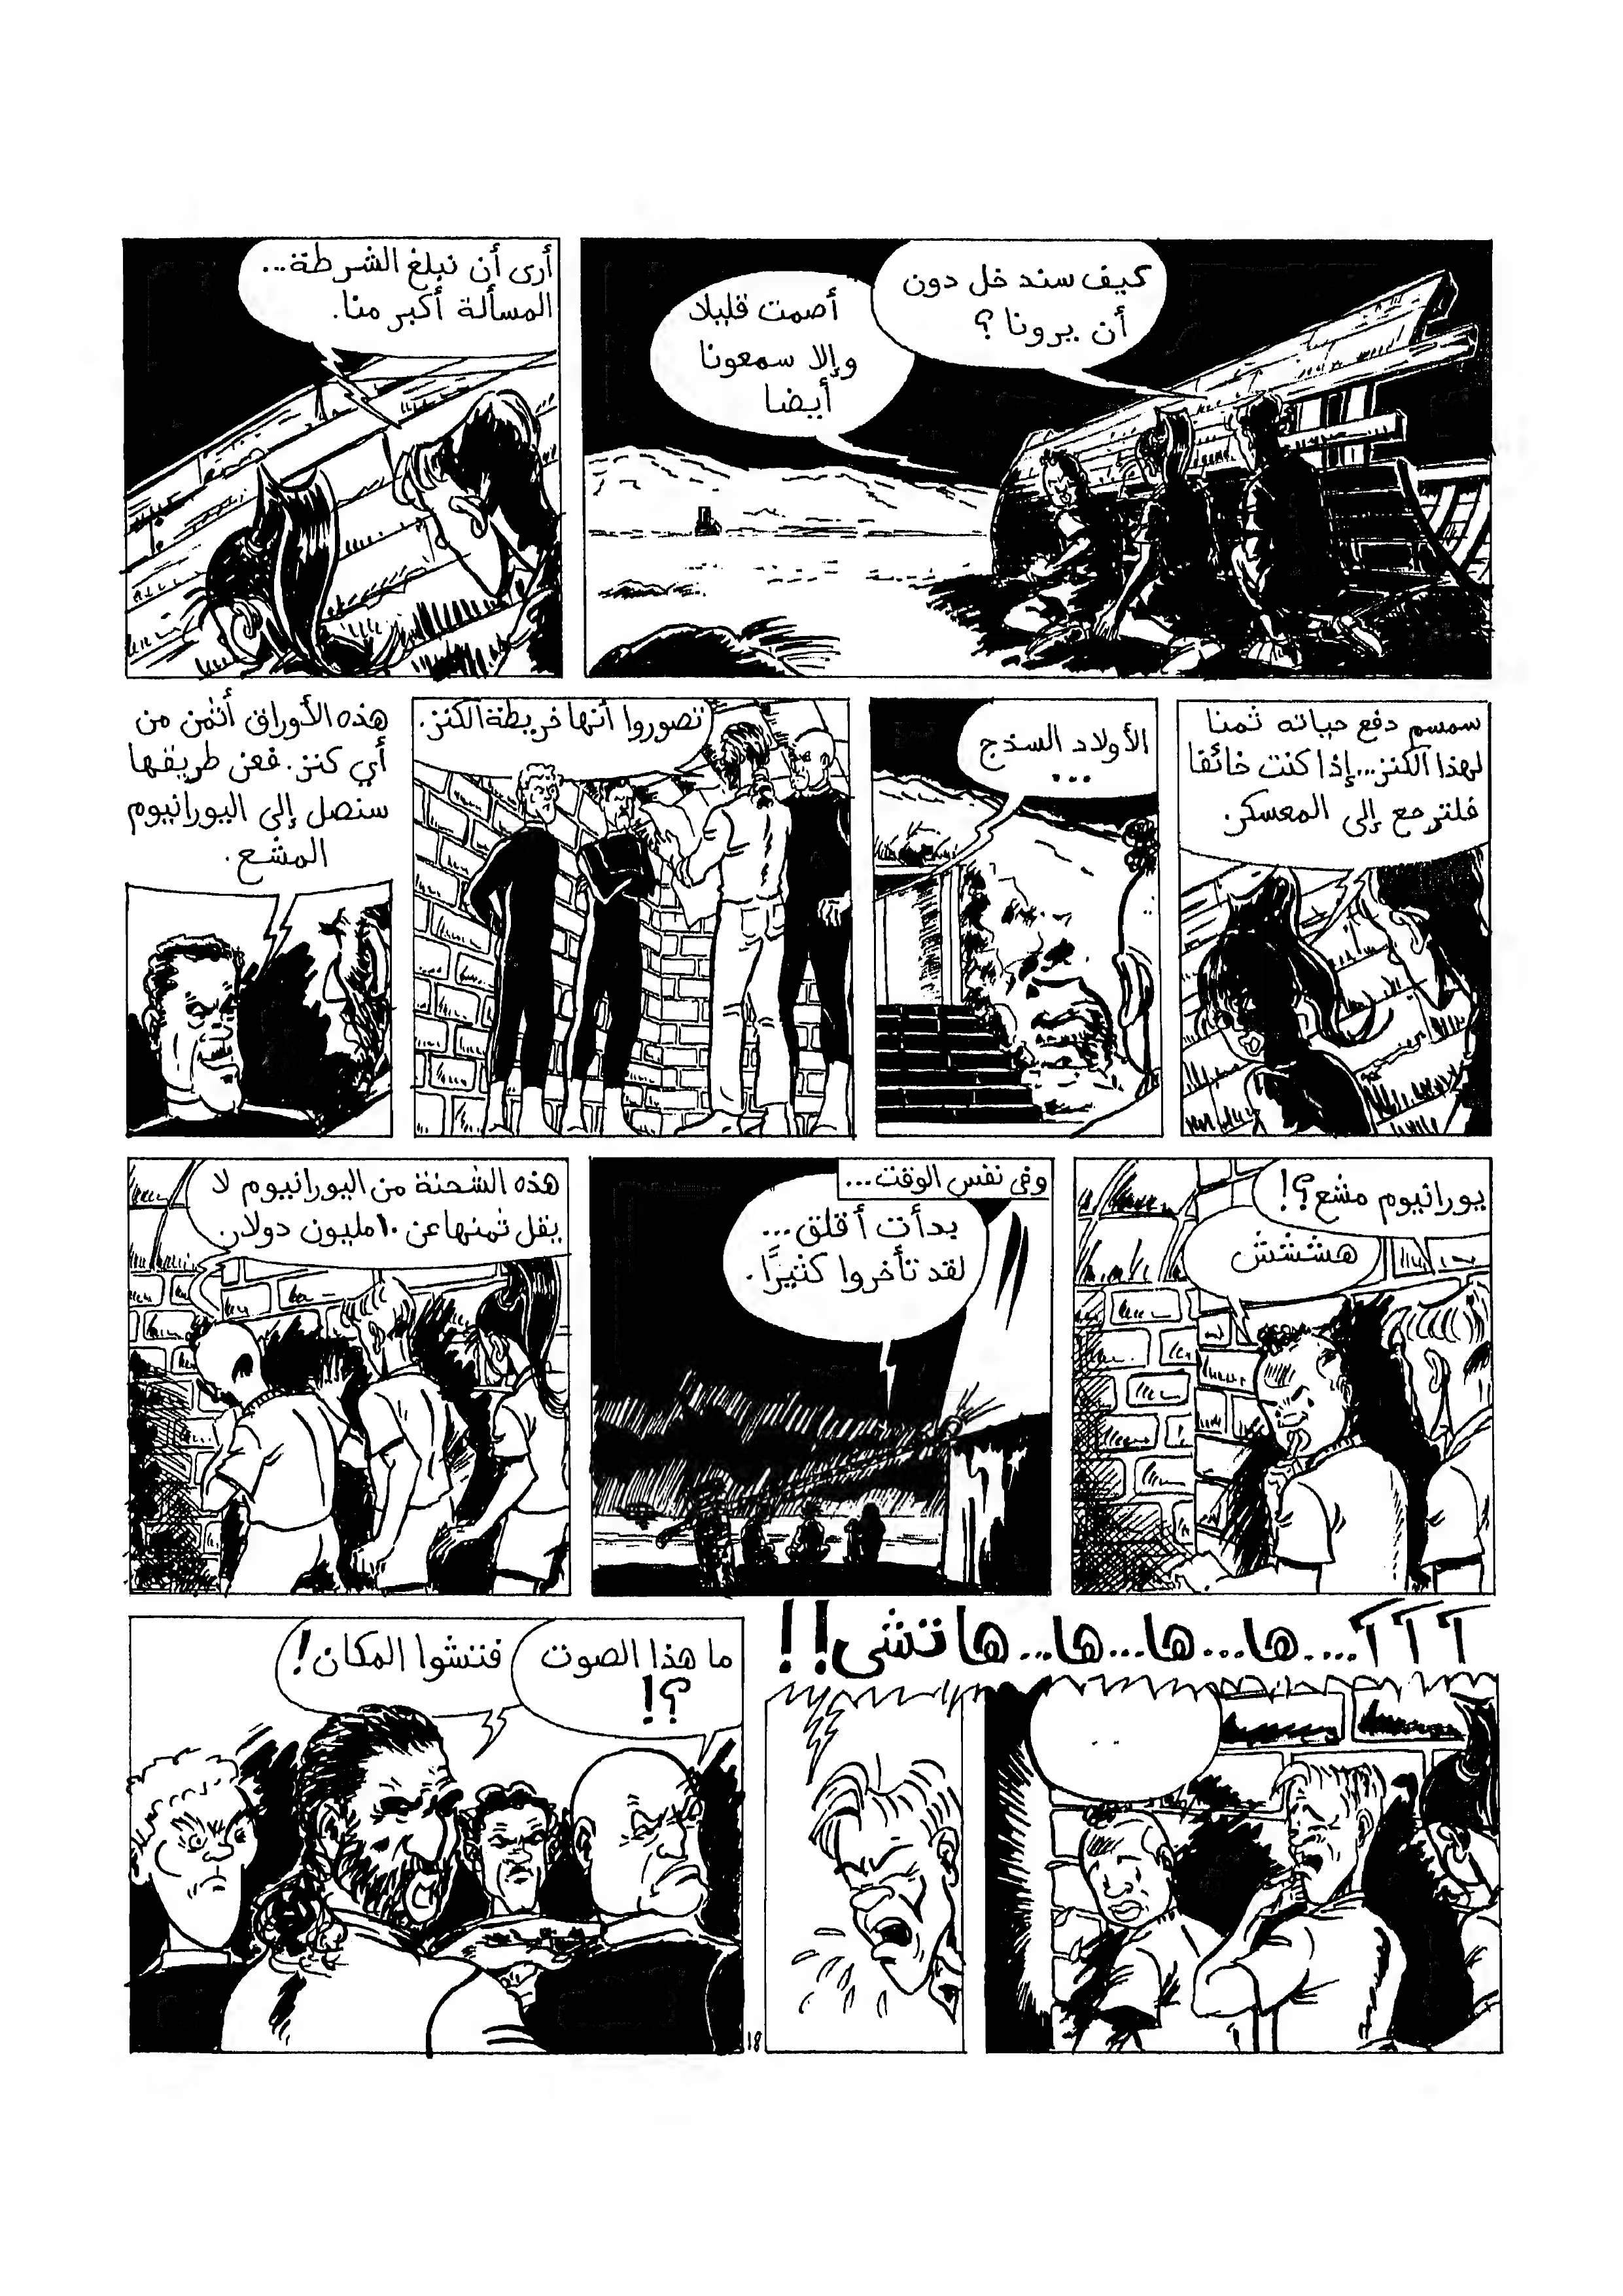 كيف سندخل دون
أن يرونا؟
أصمت قليلا
وإلا سمعونا
أيضا
أرى أن نبلغ الشرطة...
المسألة أكبر منا.
سمسم دفع حياته ثمنا
لهذا الكنز...إذا كنت خائفا
فلترجع إلى المعسكر.
الأولاد السذج
...
تصوروا أنها خريطة الكنز.
هذه الأوراق أثمن من
أي كنز. فعن طريقها
سنصل إلى اليورانيوم
المشع.
يورانيوم مشع؟!
هشششش
وفى نفس الوقت...
بدأت أقلق...
لقد تأخروا كثيرًا.
هذه الشحنة من اليورانيوم لا
يقل ثمنها عن ١٠ مليون دولار.
آ آ آ....ها...ها...ها...هاتشى!!
..
ما هذا الصوت
؟!
فتشوا المكان!
18